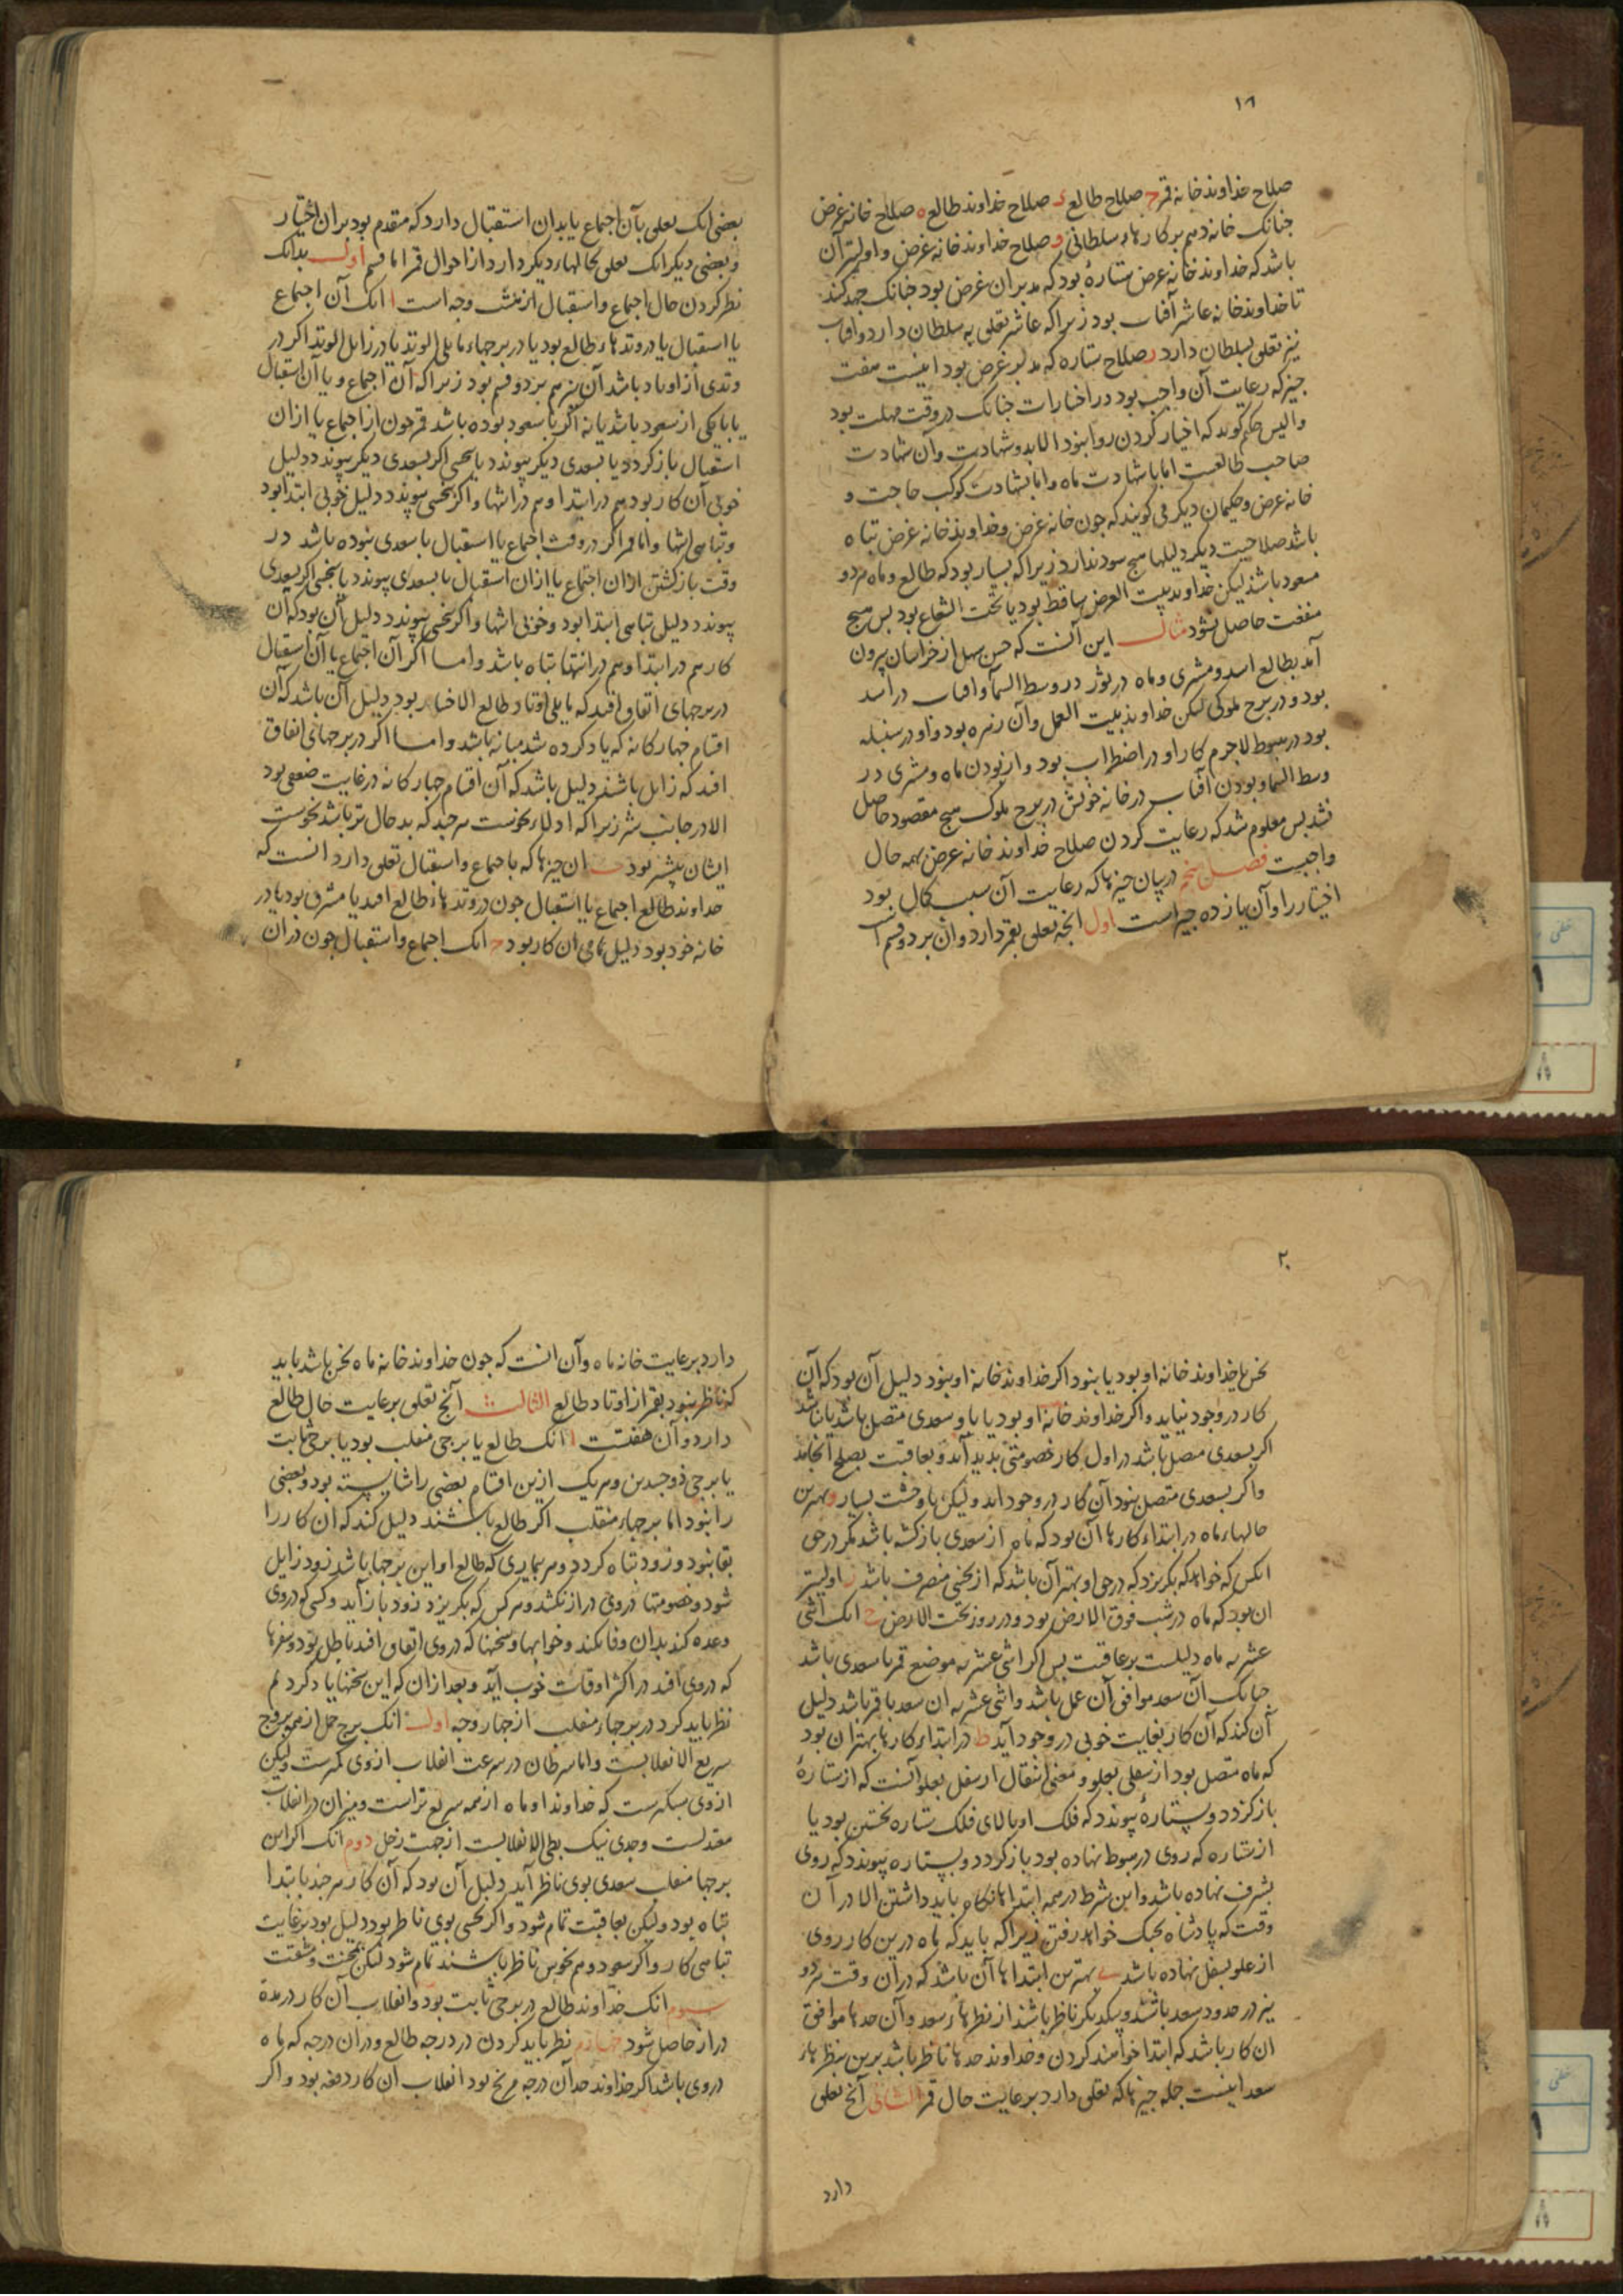 ۱۸
صلاح خداوند خانه قمر ح صلاح طالع ء صلاح خداوند طالع ه صلاح خانه غرض
جنانک خانه دهم بر کارهاء سلطانی و صلاح خداوند خانه غرض و اولیتر آن
باشد که خداوند خانه غرض ستارهٔ بود که مدبر آن غرض بود جنانک جهد کند
تا خداوند خانه عاشر آفتاب بود زیرا که عاشر تعلق به سلطان دارد و آفتاب
نیز تعلق بسلطان دارد ر صلاح ستاره که مدبر غرض بود اینست هفت
جیز که رعایت آن واجب بود در اختیارات جنانک در وقت مهلت بود
والیس حکیم کوید که اختیار کردن روا نبود الا بدو شهادت و آن شهادت
صاحب طالعست اما با شهادت ماه و اما بشهادت کوکب حاجت و
خانه غرض و حکیمان دیکر می کویند که جون خانه غرض و خداوند خانه غرض تباه
باشد صلاحیت دیکر دلیلها هیج سود ندارد زیرا که بسیار بود که طالع و ماه هر دو
مسعود باشند لیکن خداوند بیت الغرض ساقط بود یا تحت الشعاع بود بس هیج
منفعت حاصل نشود مثال این آنست که حسن سهل از خراسان بیرون
آمد بطالع اسد و مشتری و ماه در ثور در وسط السمآ و آفتاب در اسد
بود و در برج ملوکی لیکن خداوند بیت العمل و آن زهره بود و او در سنبله
بود در هبوط لاجرم کار او در اضطراب بود و از بودن ماه و مشتری در
وسط السما و بودن آفتاب در خانه خویش در برج ملوک هیج مقصود حاصل
نشد بس معلوم شد که رعایت کردن صلاح خداوند خانه غرض بهمه حال
واجبست فصل پنجم در بیان جیزها که رعایت آن سبب کمال بود
اختیار را و آن یازده جیز است اول آنجه تعلق بقمر دارد و آن بر دو قسم است
بعضی انک تعلق بآن اجتماع یا بدان استقبال دارد که مقدم بود بر آن اختیار
و بعضی دیکر انک تعلق بحالهاء دیکر دارد از احوال قمر اما قسم اول بدانک
نظر کردن حال اجتماع و استقبال از شش وجه است ا انک آن اجتماع
یا استقبال یا در وتدهاء طالع بود یا در برجهاء مایلی الوتد یا در زایل الوتد اکر در
وتدی از اوتاد باشد آن نیز هم بر دو قسم بود زیرا که آن اجتماع و یا آن استقبال
یا با یکی از سعود باشد یا نه اکر با سعود بوده باشد قمر جون از اجتماع یا از آن
استقبال باز کردد یا بسعدی دیکر پیوندد یا بنحسی اکر بسعدی دیکر پیوندد دلیل
خوبی آن کار بود هم در ابتدا و هم در انتها و اکر بنحسی پیوندد دلیل خوبی ابتدا بود
و تباهی انتها و اما قمر اکر در وقت اجتماع یا استقبال با سعدی نبوده باشد در
وقت بازکشتن از آن اجتماع یا از آن استقبال یا بسعدی پیوندد یا بنحسی اکر بسعدی
پیوندد دلیل تباهی ابتدا بود و خوبی انتها و اکر بنحسی پیوندد دلیل آن بود که آن
کار هم در ابتدا و هم در انتها تباه باشد و اما اکر آن اجتماع یا آن استقبال
در برجهای اتفاق افتد که مایلی اوتاد طالع الاختیار بود دلیل آن باشد که آن
اقسام جهارکانه که یاد کرده شد میانه باشد و اما اکر در برجهائی اتفاق
افتد که زایل باشند دلیل باشد که آن اقسام جهارکانه در غایت ضعیفی بود
الا در جانب شر زیرا که ادلاء نحوست هر جند که بد حال تر باشد نحوست
ایشان بیشتر بود ب آن جیزها که باجتماع و استقبال تعلق دارد انست که
خداوند طالع اجتماع یا استقبال جون در وتدهاء طالع افتد یا مشرف بود یا در
خانه خود بود دلیل تمامی آن کار بود ح انک اجتماع و استقبال جون در آن
۲۰
نحس یا خداوند خانه او بود یا نبود اکر خداوند خانه او نبود دلیل آن بود که آن
کار در وجود نیاید و اکر خداوند خانه او بود یا باو سعدی متصل باشد یا نباشد
اکر بسعدی متصل باشد در اول کار خصومتی بدید آید و بعاقبت بصلح انجامد
و اکر بسعدی متصل نبود آن کار در وجود آید و لیکن با وحشت بسیار و بهترین
حالهاء ماه در ابتداء کارها آن بود که ماه از سعدی بازکشته باشد مکر در حق
انکس که خواهد که بکریزد که در حق او بهتر آن باشد که از نحسی منصرف باشد ز اولیتر
آن بود که ماه در شب فوق الارض بود و در روز تحت الارض ح انک اثنی
عشریه ماه دلیلست بر عاقبت بس اکر اثنی عشریه موضع قمر با سعدی باشد
جنانک آن سعد موافق آن عمل باشد و اثنی عشریه آن سعد با قمر باشد دلیل
آن کند که آن کار بغایت خوبی در وجود آید ط در ابتداء کارها بهتر آن بود
که ماه متصل بود از سفلی بعلو و معنی انتقال از سفل بعلو آنست که از ستارهٔ
باز کردد و بستارهٔ پیوندد که فلک او بالای فلک ستاره نخستین بود یا
از ستاره که روی در هبوط نهاده بود باز کردد و بستاره پیوندد که روی
بشرف نهاده باشد و این شرط در همه ابتداها نکاه باید داشتن الا در آن
وقت که پادشاه بجنک خواهد رفتن زیرا که باید که ماه درین کار روی
از علو بسفل نهاده باشد ی بهترین ابتداها آن باشد که در آن وقت هر دو
نیز در حدود سعد باشند و بیکدیکر ناظر باشند از نظرهاء سعد و آن حدها موافق
آن کار باشد که ابتدا خواهند کردن و خداوند حدها ناظر باشد برین نظرهاء
سعد اینست جمله جیزها که تعلق دارد برعایت حال قمر الثانی آنج تعلق
دارد
دارد برعایت خانه ماه و آن انست که جون خداوند خانه ماه نحس باشد باید
که ناظر نبود بقمر از اوتاد طالع الثالث آنج تعلق برعایت حال طالع
دارد و آن هفتست ا انک طالع یا برجی منقلب بود یا برجی ثابت
یا برجی ذوجسدین و هر یک ازین اقسام بعضی را شایسته بود و بعضی
را نبود اما برجهاء منقلب اکر طالع باشند دلیل کند که آن کار را
بقا نبود و زود تباه کردد و هر بیماری که طالع او این برجها باشد زود زایل
شود و خصومتها در وی دراز نکشد و هر کس که بکریزد زود باز آید و کسی که در وی
وعده کند بدان وفا نکند و خوابها و سخنها که در وی اتفاق افتد باطل بود و سفرها
که در وی افتد در اکثر اوقات خوب آید و بعد از آن که این سخنها یاد کردیم
نظر باید کرد در برجهاء منقلب از جهار وجه اول انک برج حمل از همه بروج
سریع الانقلابست و اما سرطان در سرعت انقلاب از وی کمترست ولیکن
از وی سبکترست که خداوند او ماه از همه سریع تر است و میزان در انقلاب
معتدلست و جدی نیک بطی الانقلابست از جهت زحل دوم انک اکر این
برجها منقلب سعدی بوی ناظر آید دلیل آن بود که آن کار هر جند بابتدا
تباه بود ولیکن بعاقبت تمام شود و اکر نحسی بوی ناظر بود دلیل بود بر غایت
تباهی کار و اکر سعود و هم نحوس ناظر باشند تمام شود لیکن بمحنت و مشقت
سیوم انک خداوند طالع در برجی ثابت بود و انقلاب آن کار در مدة
دراز حاصل شود جهارم نظر باید کردن در درجه طالع و در آن درجه که ماه
در وی باشد اکر خداوند حد آن درجه مریخ بود انقلاب آن کار دفعه بود و اکر